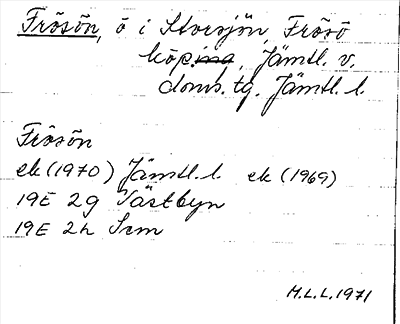 Frösön, ö i Storsjön, Frösö
köp, Jämtl. v.
doms. tg. Jämtl. l.
Frösön
ek (1970) Jämtl. l. ek (1969)
19E 2g Västbyn
19E 2h
M.L.L. 1971